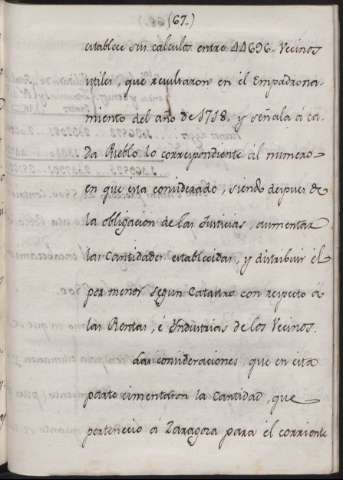 (67.)
establece sin calculos entre 44696. Vecinos
utiles, que resultaron en el Empadrona-
miento del año de 1718. y señala á ca-
da Pueblo lo correspondiente al numero
en que esta considerado, siendo despues de
la obligacion de las Justicias, aumentar
las Cantidades establecidas, y distribuir el
por menor segun Catastro con respecto á
las Rentas, é Industrias de los Vecinos.
Las consideraciones, que en esta
parte cimentaron la Cantidad, que
pertenecio á Zaragoza para el corriente